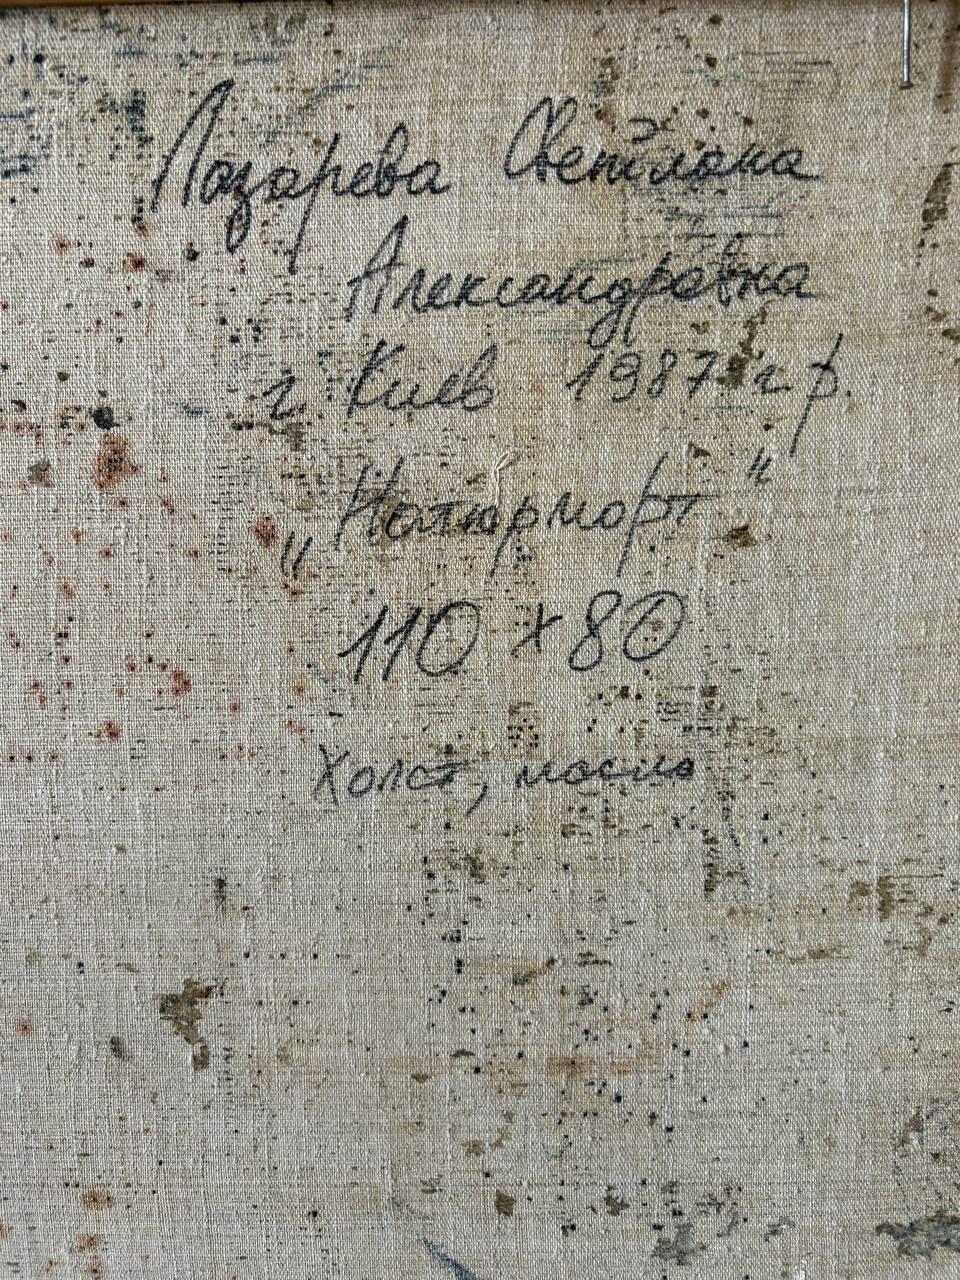 Лазарева Светлана
Александровна
г. Киев 1987 г.р.
„Натюрморт"
110 x 80
Холст, масло